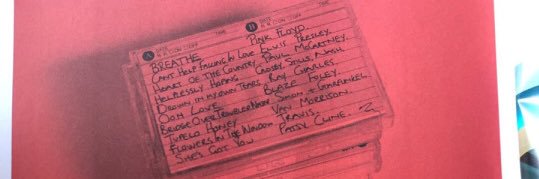 A DATE TIME B DATE TIME
BREATHE PINK FLOYD.
CAN'T HELP FALLING IN LOVE ELVIS PRESLEY.
HEART OF THE COUNTRY PAUL McCARTNEY.
HELPLESSLY HOPING CROSBY, STILLS, NASH.
DROWN IN MY OWN TEARS RAY CHARLES.
OOH LOVE BLAZE FOLEY.
BRIDGE OVER TROUBLED WATER SIMON + GARFUNKEL.
TUPELO HONEY VAN MORRISON.
FLOWERS IN THE WINDOW TRAVIS.
SHE'S GOT YOU PATSY CLINE.